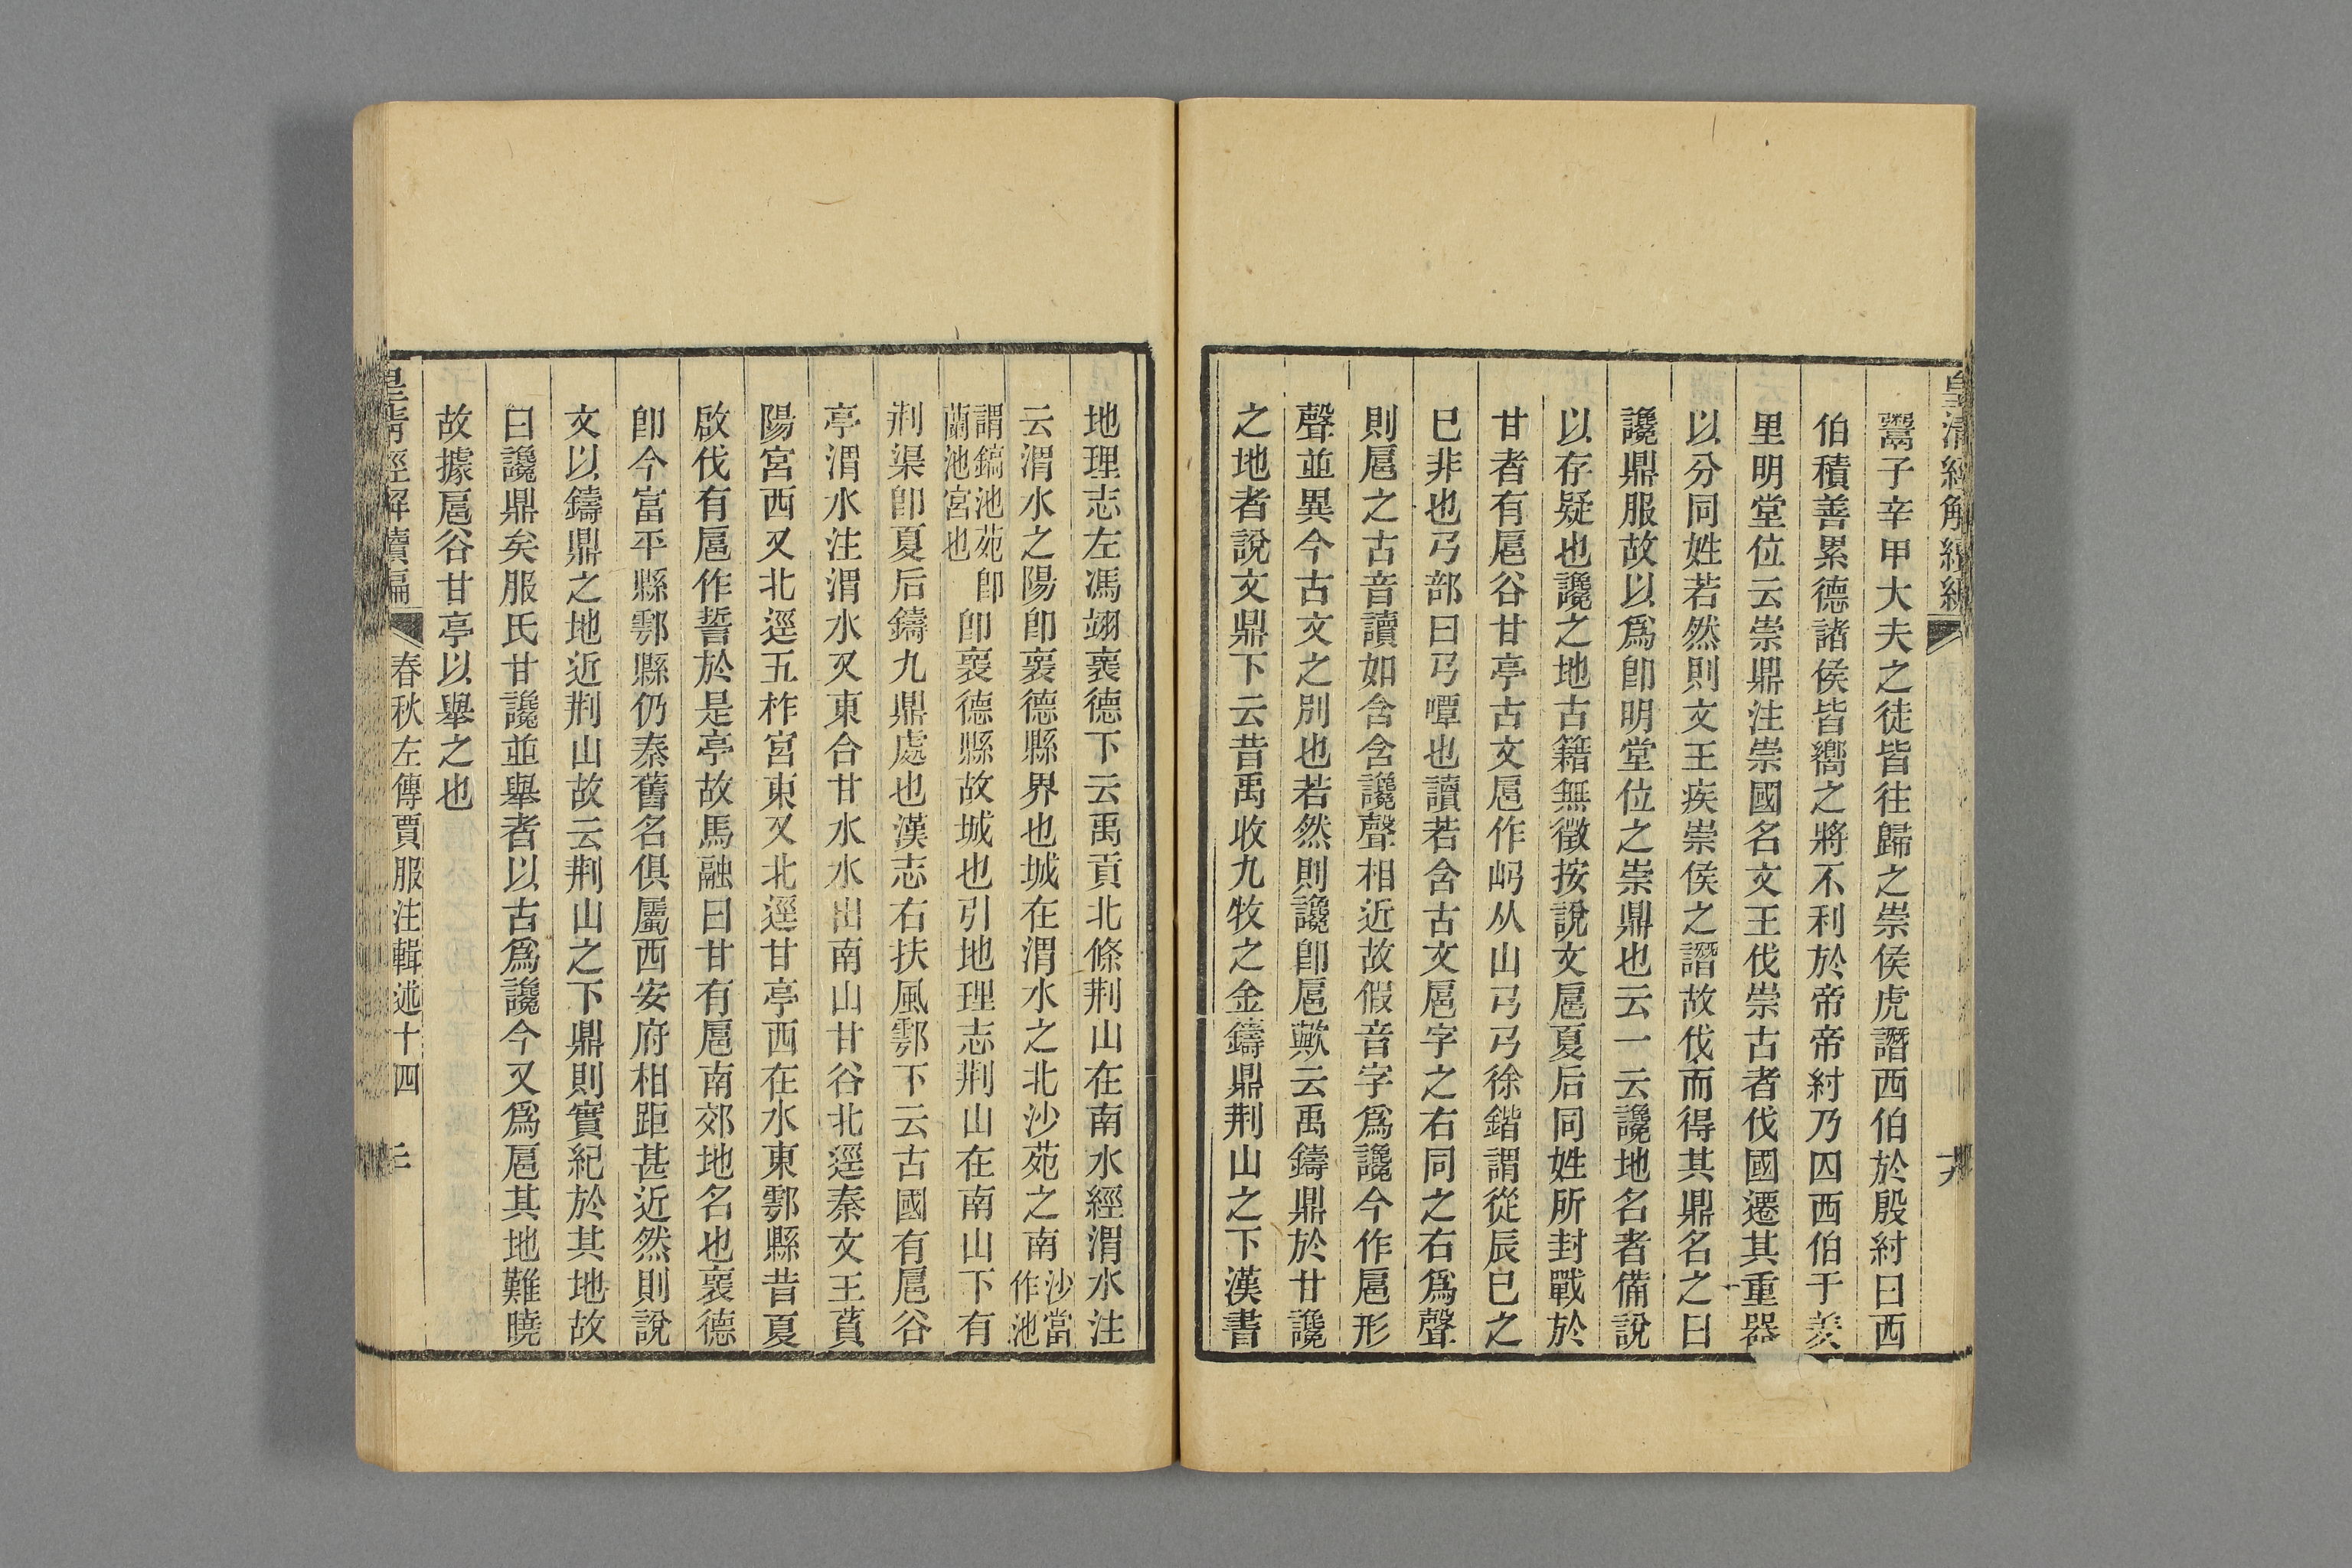 皇清經解續編
鬻子辛甲大夫之徒皆往歸之崇侯虎譖西伯於殷紂曰西
伯積善累德諸侯皆嚮之將不利於帝帝紂乃囚西伯于羑
里明堂位云崇鼎注崇國名文王伐崇古者伐國遷其重器
以分同姓若然則文王疾崇侯之譖故伐而得其鼎名之曰
讒鼎服故以爲卽明堂位之崇鼎也云一云讒地名者備說
以存疑也讒之地古籍無徵按說文扈夏后同姓所封戰於
甘者有扈谷甘亭古文扈作𡵆从山弓弓徐鍇謂從辰巳之
巳非也弓部曰弓嘾也讀若含古文扈字之右同之右爲聲
則扈之古音讀如含含讒聲相近故假音字爲讒今作扈形
聲並異今古文之別也若然則讒卽扈歟云禹鑄鼎於甘讒
之地者說文鼎下云昔禹收九牧之金鑄鼎荆山之下漢書
地理志左馮翊褱德下云禹貢北條荆山在南水經渭水注
云渭水之陽卽褱德縣界也城在渭水之北沙苑之南沙當作池
謂鎬池苑卽蘭池宮也卽褱德縣故城也引地理志荆山在南山下有
荆渠卽夏后鑄九鼎處也漢志右扶風鄠下云古國有扈谷
亭渭水注渭水又東合甘水水出南山甘谷北逕秦文王萯
陽宮西又北逕五柞宮東又北逕甘亭西在水東鄠縣昔夏
啟伐有扈作誓於是亭故馬融曰甘有扈南郊地名也褱德
卽今富平縣鄠縣仍秦舊名俱屬西安府相距甚近然則說
文以鑄鼎之地近荆山故云荆山之下鼎則實紀於其地故
曰讒鼎矣服氏甘讒並舉者以古爲讒今又爲扈其地難曉
故據扈谷甘亭以舉之也
皇清經解續編
春秋左傳賈服注輯述十四